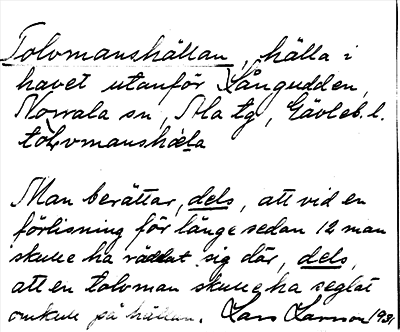 Tolvmanshällan, hälla i
havet utanför Långudden,
Norrala sn, Ala tg, Gävleb. l.
tòlvmanshæla
Man berättar, dels, att vid en
förlisning för länge sedan 12 man
skulle ha räddat sig där, dels,
att en tolvman skulle ha seglat
omkull på hällan. Lars Larsson 193